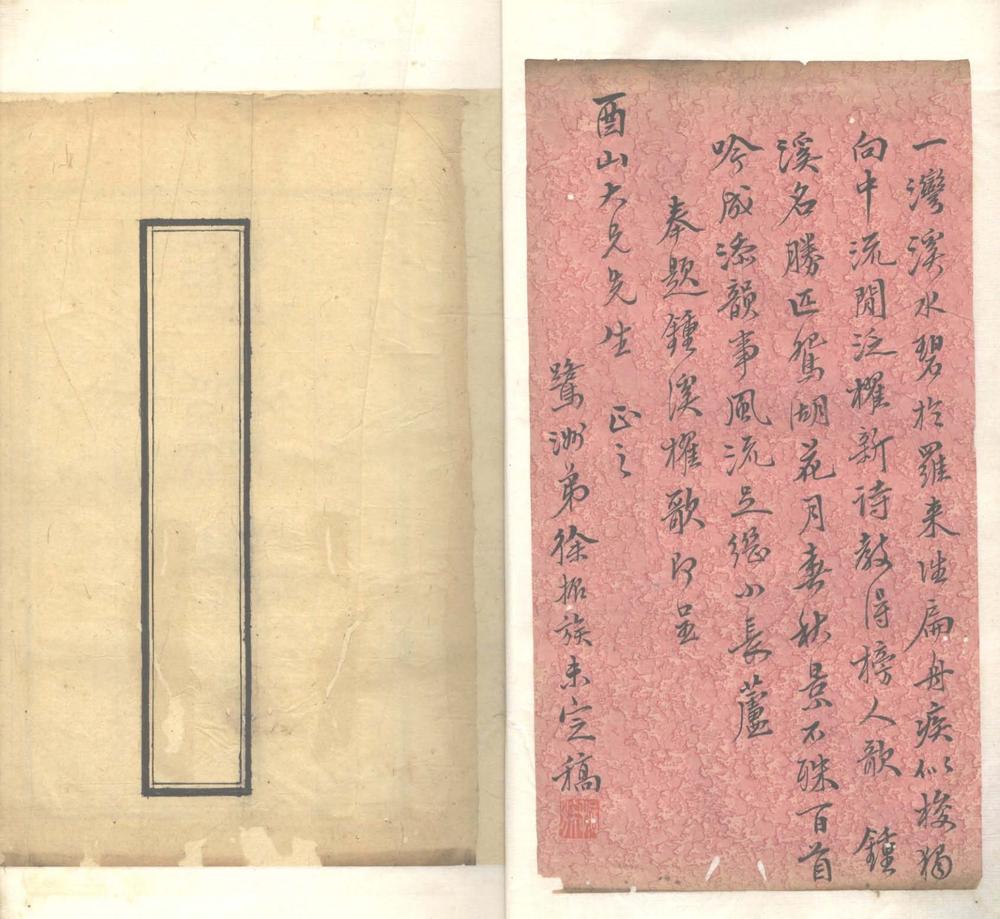 一灣溪水碧於羅来往扁舟疾似梭獨
向中流閒泛櫂新詩教得榜人歌　鍾
溪名勝匹鴛湖花月春秋景不殊百首
吟成添韻事風流足繼小長蘆
奉題鍾溪櫂歌即呈
酉山大兄先生　正之
鷺洲弟徐振族未定稿